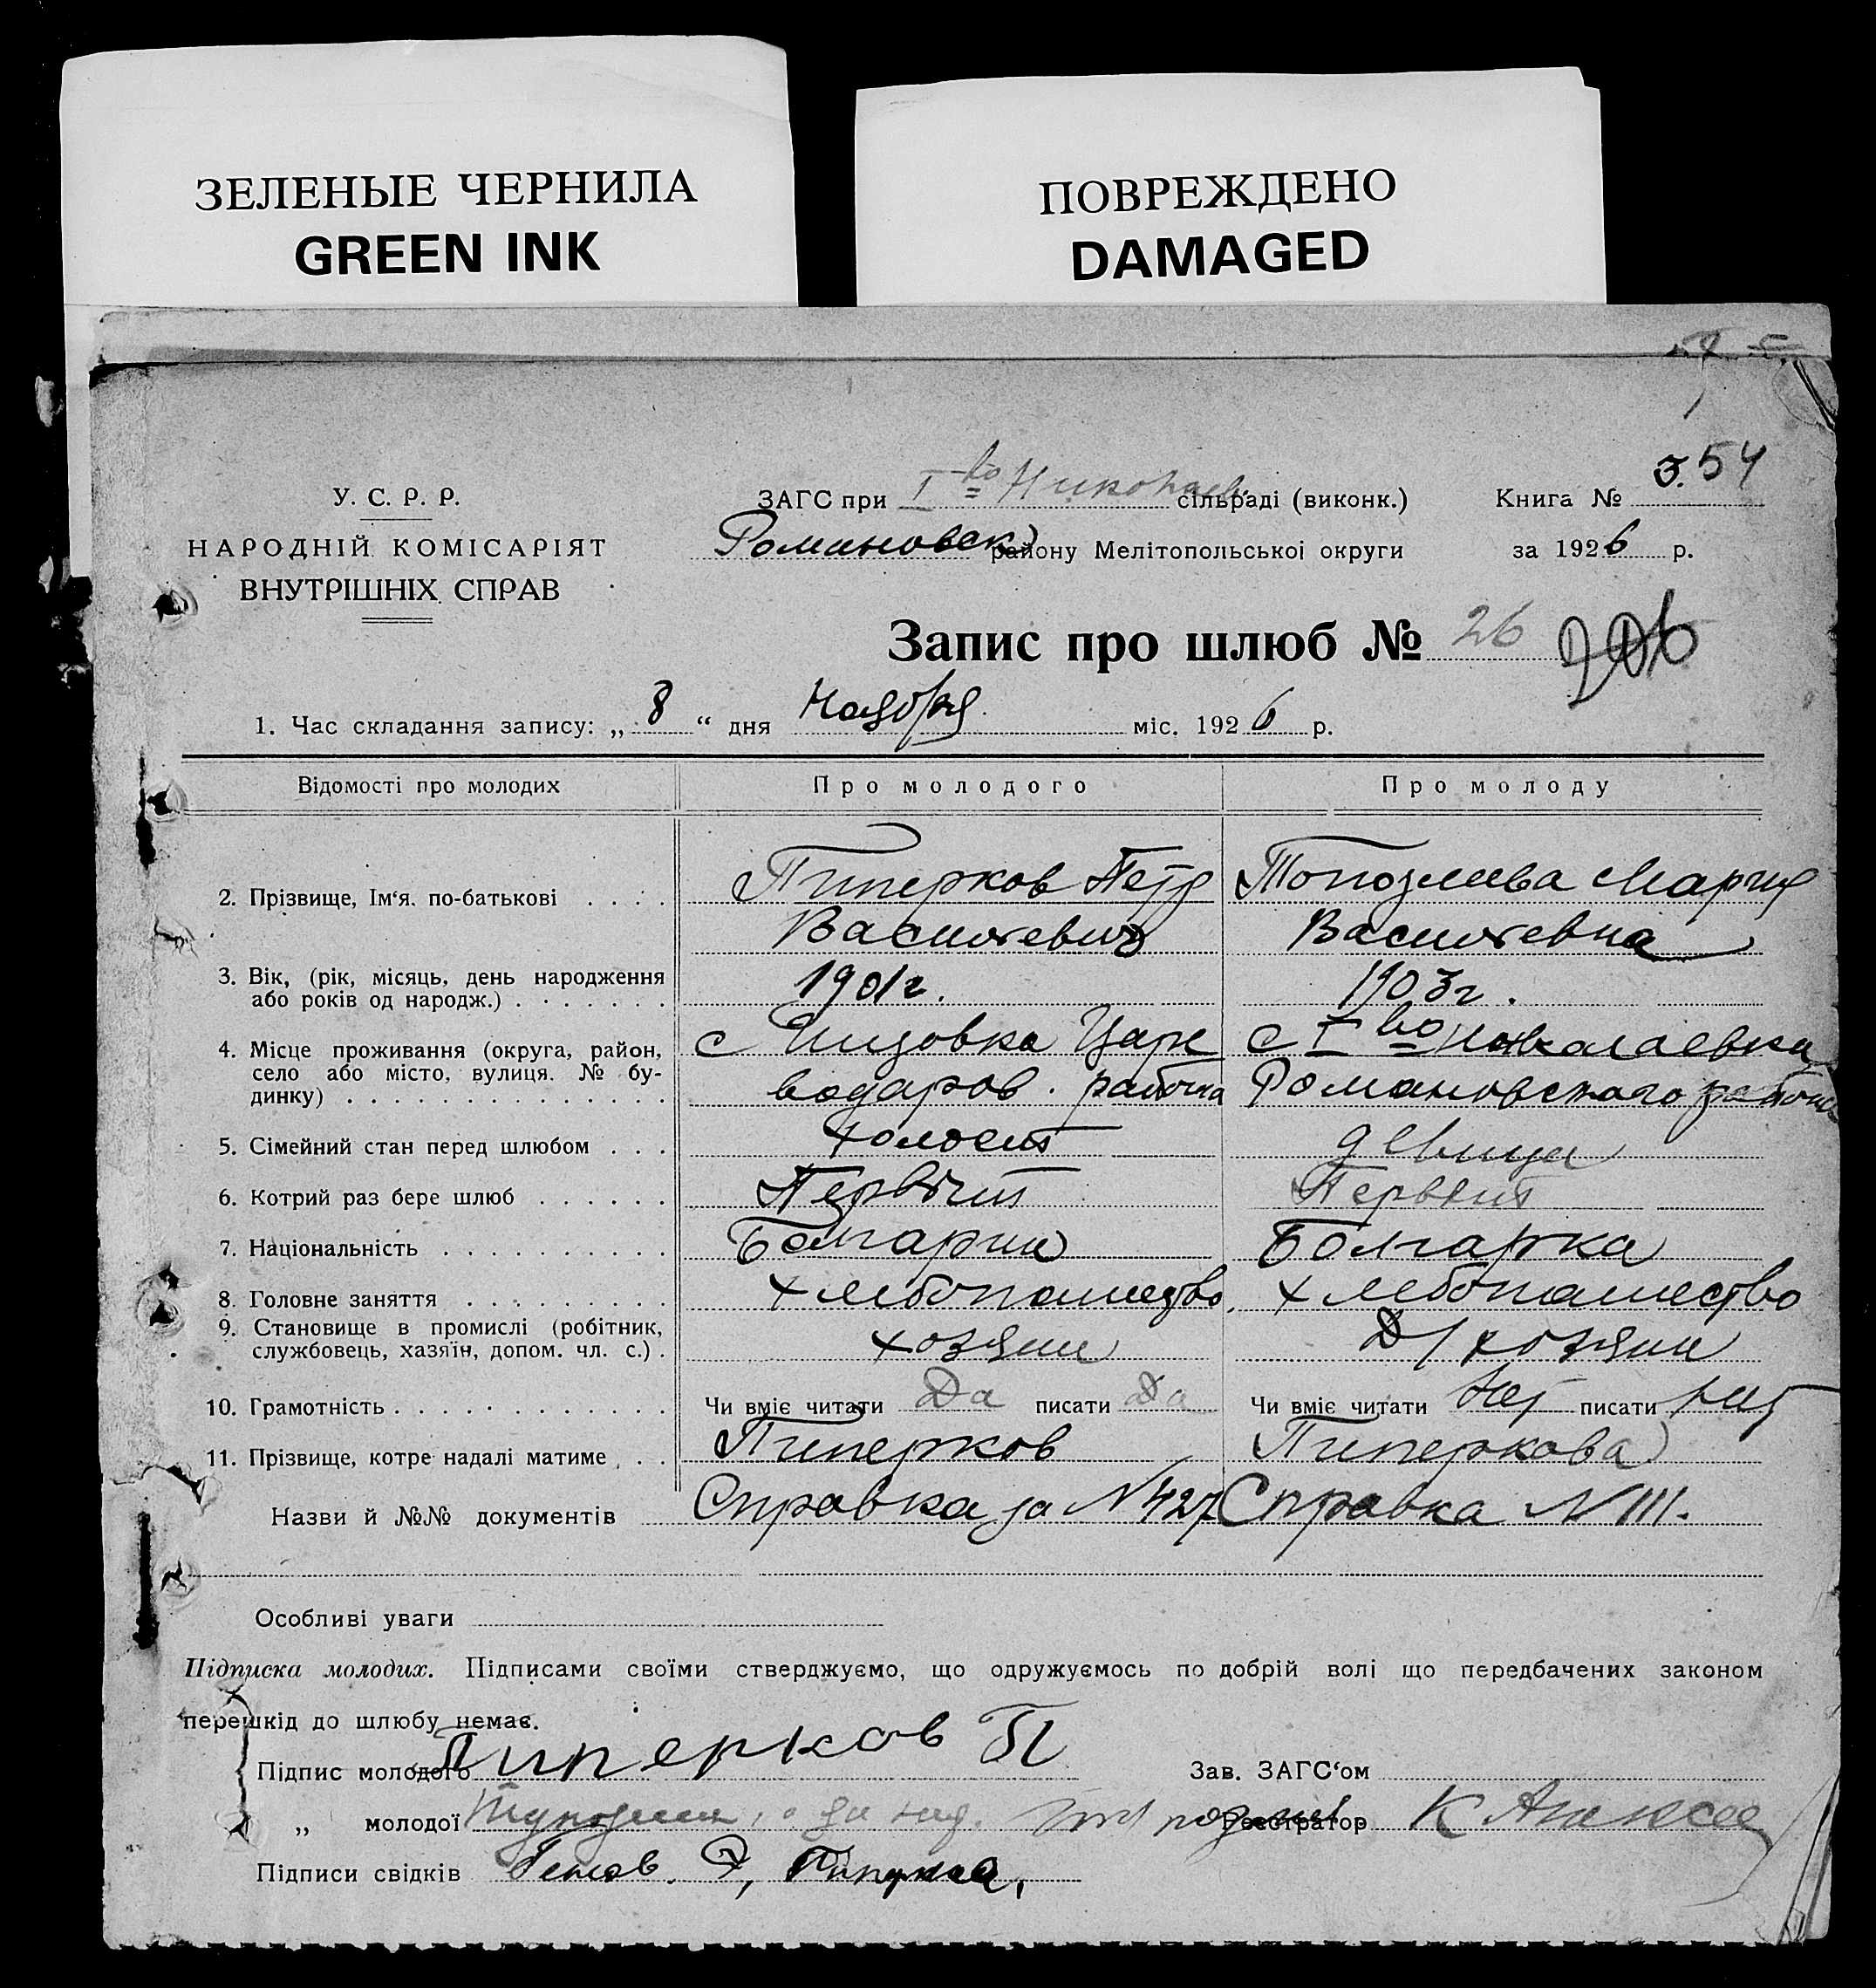 ЗЕЛЕНЫЕ ЧЕРНИЛА
GREEN INK
ПОВРЕЖДЕНО
DAMAGED
У. С. Р. Р.
НАРОДНІЙ КОМІСАРІЯТ
ВНУТРІШНІХ СПРАВ
ЗАГС при Іво Николаев. сільраді (виконк.)
Романовск району Мелітопольської округи
Книга № 3.54
за 1926 р.
Запис про шлюб № 26
1. Час складання запису: „8“ дня Ноября міс. 1926 р.
Відомості про молодих
Про молодого
Про молоду
2. Прізвище, Ім‘я, по-батькові . . . . Пиперков Петр Васильевич
Топозлиева Мария Васильевна
3. Вік, (рік, місяць, день народження
або років од народж.) . . . . . . . 1901 г.
1903 г.
4. Місце проживання (округа, район,
село або місто, вулиця. № бу-
динку) . . . . . . . . . . . . . .
с Гизовка Царе
водаров. района
с Іво Николаевка
Романовского района
5. Сімейний стан перед шлюбом . . . холост
девица
6. Котрий раз бере шлюб . . . . . . Первый
Первый
7. Національність . . . . . . . . . . Болгарин
Болгарка
8. Головне заняття . . . . . . . . . хлебопашество
хлебопашество
9. Становище в промислі (робітник,
службовець, хазяїн, допом. чл. с.) . хозяин
Д/хозяин
10. Грамотність . . . . . . . . . . . . Чи вміє читати Да писати Да
Чи вміє читати Нет писати нет
11. Прізвище, котре надалі матиме . . . Пиперков
Пиперкова
Назви й №№ документів Справка за N 427
Справка N 111.
Особливі уваги
Підписка молодих. Підписами своїми стверджуємо, що одружуємось по добрій волі що передбачених законом
перешкід до шлюбу немає.
Підпис молодого Пиперков П
Зав. ЗАГС‘ом
„ молодої
Реєстратор К
Підписи свідків